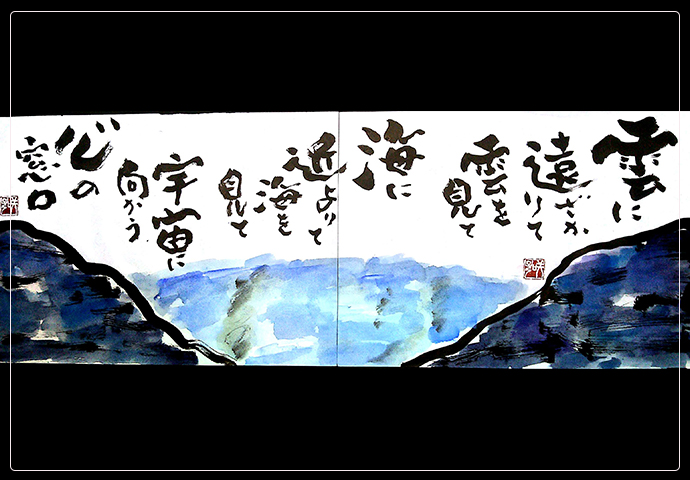 雲に
遠ざかりて
雲を
見て
海に
近よりて
海を
見て
宇宙に
向かう
心の
窓口